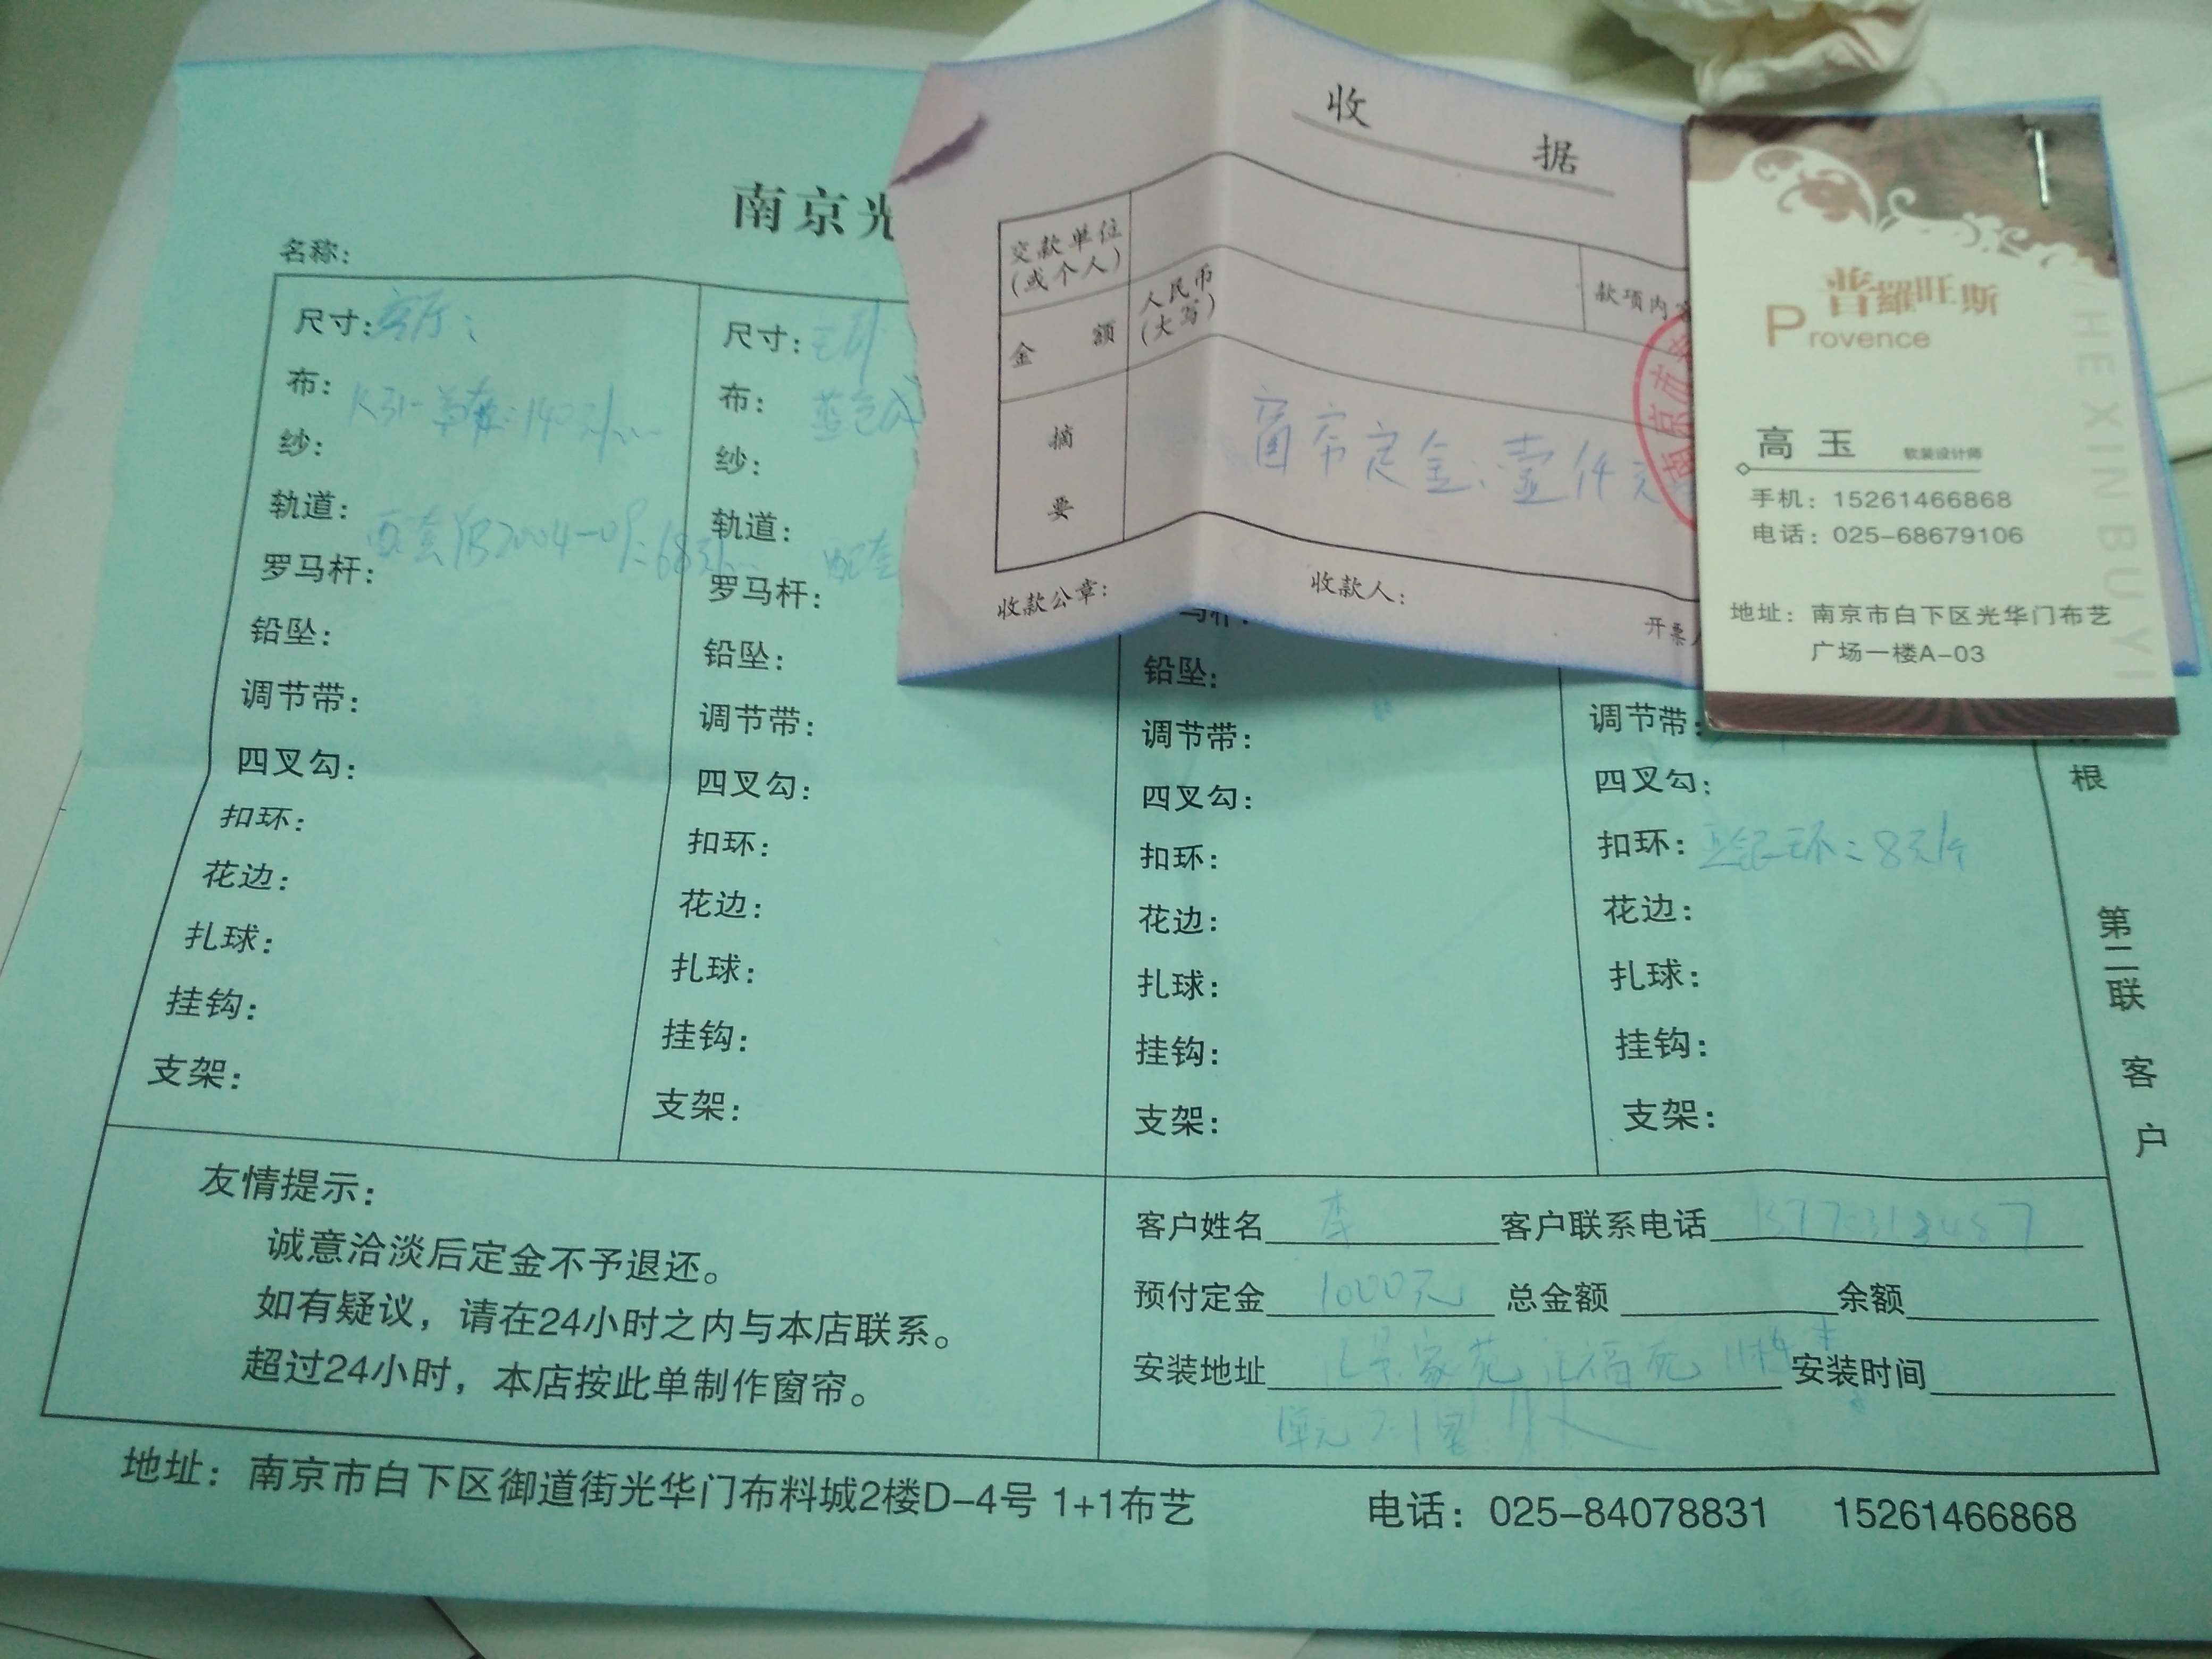 南京光
名称：
尺寸：客厅：
布：
纱：
轨道：
罗马杆：
铅坠：
调节带：
四叉勾：
扣环：
花边：
扎球：
挂钩：
支架：
尺寸：
布：
纱：
轨道：
配套
罗马杆：
铅坠：
调节带：
四叉勾：
扣环：
花边：
扎球：
挂钩：
支架：
铅坠：
调节带：
四叉勾：
扣环：
花边：
扎球：
挂钩：
支架：
调节带：
四叉勾：
扣环：
8元/个
花边：
扎球：
挂钩：
支架：
根
第二联 客户
收据
交款单位
（或个人）
款项内容
金额
人民币
（大写）
摘要
窗帘定金：壹仟元
收款公章：
收款人：
开票
普羅旺斯
Provence
高玉 软装设计师
手机：15261466868
电话：025-68679106
地址：南京市白下区光华门布艺
广场一楼A-03
HE XIN BU YI
友情提示：
诚意洽淡后定金不予退还。
如有疑议，请在24小时之内与本店联系。
超过24小时，本店按此单制作窗帘。
客户姓名 李 客户联系电话
预付定金 1000元 总金额 余额
安装地址 安装时间
地址：南京市白下区御道街光华门布料城2楼D-4号 1+1布艺 电话：025-84078831 15261466868